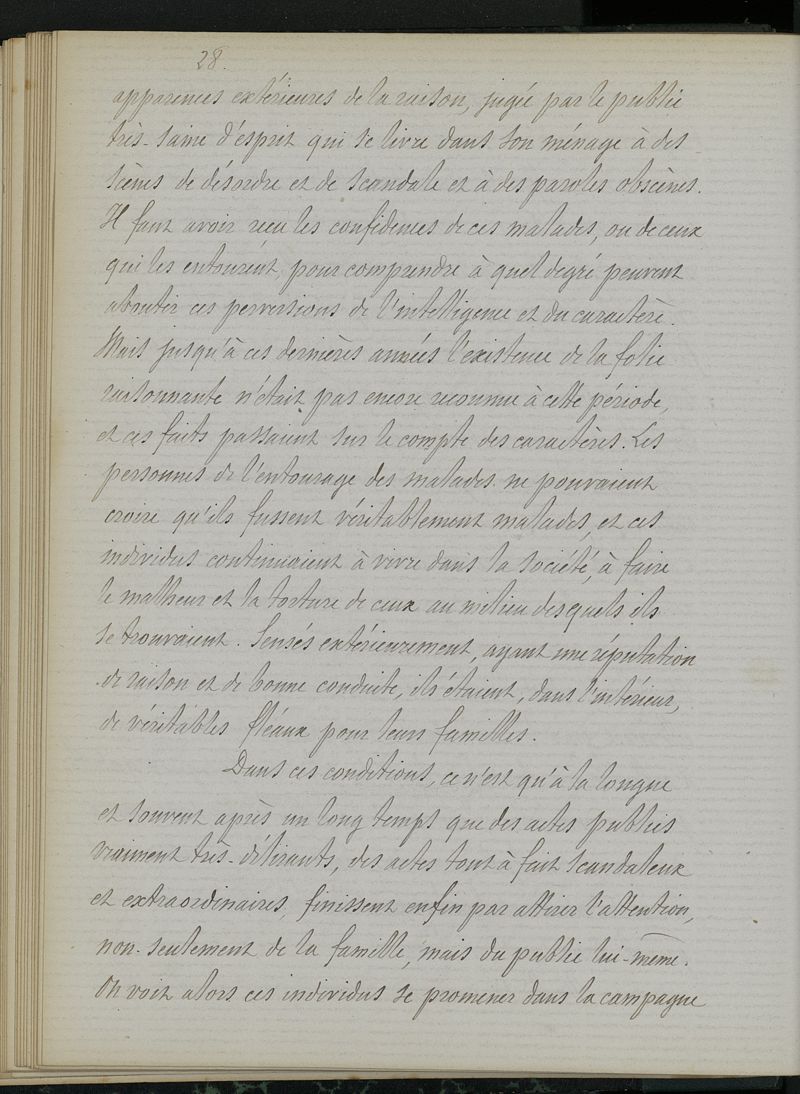 28.
apparences extérieures de la raison, jugée par le public
très-saine d'esprit qui se livre dans son ménage à des
scènes de désordre et de scandale et à des paroles obscènes.
Il faut avoir reçu les confidences de ces malades, ou de ceux
qui les entourent, pour comprendre à quel degré peuvent
aboutir ces perversions de l'intelligence et du caractère.
Mais jusqu'à ces dernières années l'existence de la folie
raisonnante n'était pas encore reconnue à cette période,
et ces faits passaient sur le compte des caractères. Les
personnes de l'entourage des malades ne pouvaient
croire qu'ils fussent véritablement malades, et ces
individus continuaient à vivre dans la société, à faire
le malheur et la torture de ceux au milieu desquels ils
se trouvaient. Sensés extérieurement, ayant une réputation
de raison et de bonne conduite, ils étaient, dans l'intérieur,
de véritables fléaux pour leurs familles.
Dans ces conditions, ce n'est qu'à la longue
et souvent après un long temps que des actes publics
vraiment très-délirants, des actes tout à fait scandaleux
et extraordinaires, finissent enfin par attirer l'attention,
non-seulement de la famille, mais du public lui-même.
On voit alors ces individus se promener dans la campagne